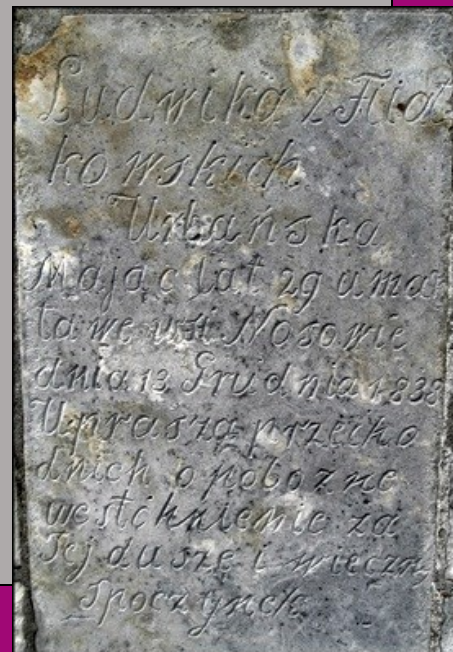 Ludwika z Fiał
kowskich
Urbańska
Mając lat 29 umar
ła we wsi Nosowie
dnia 13 Grudnia 1838
Uprasza przecho
dnich o pobożne
westchnienie za
Jej duszę i wieczny
Spoczynek